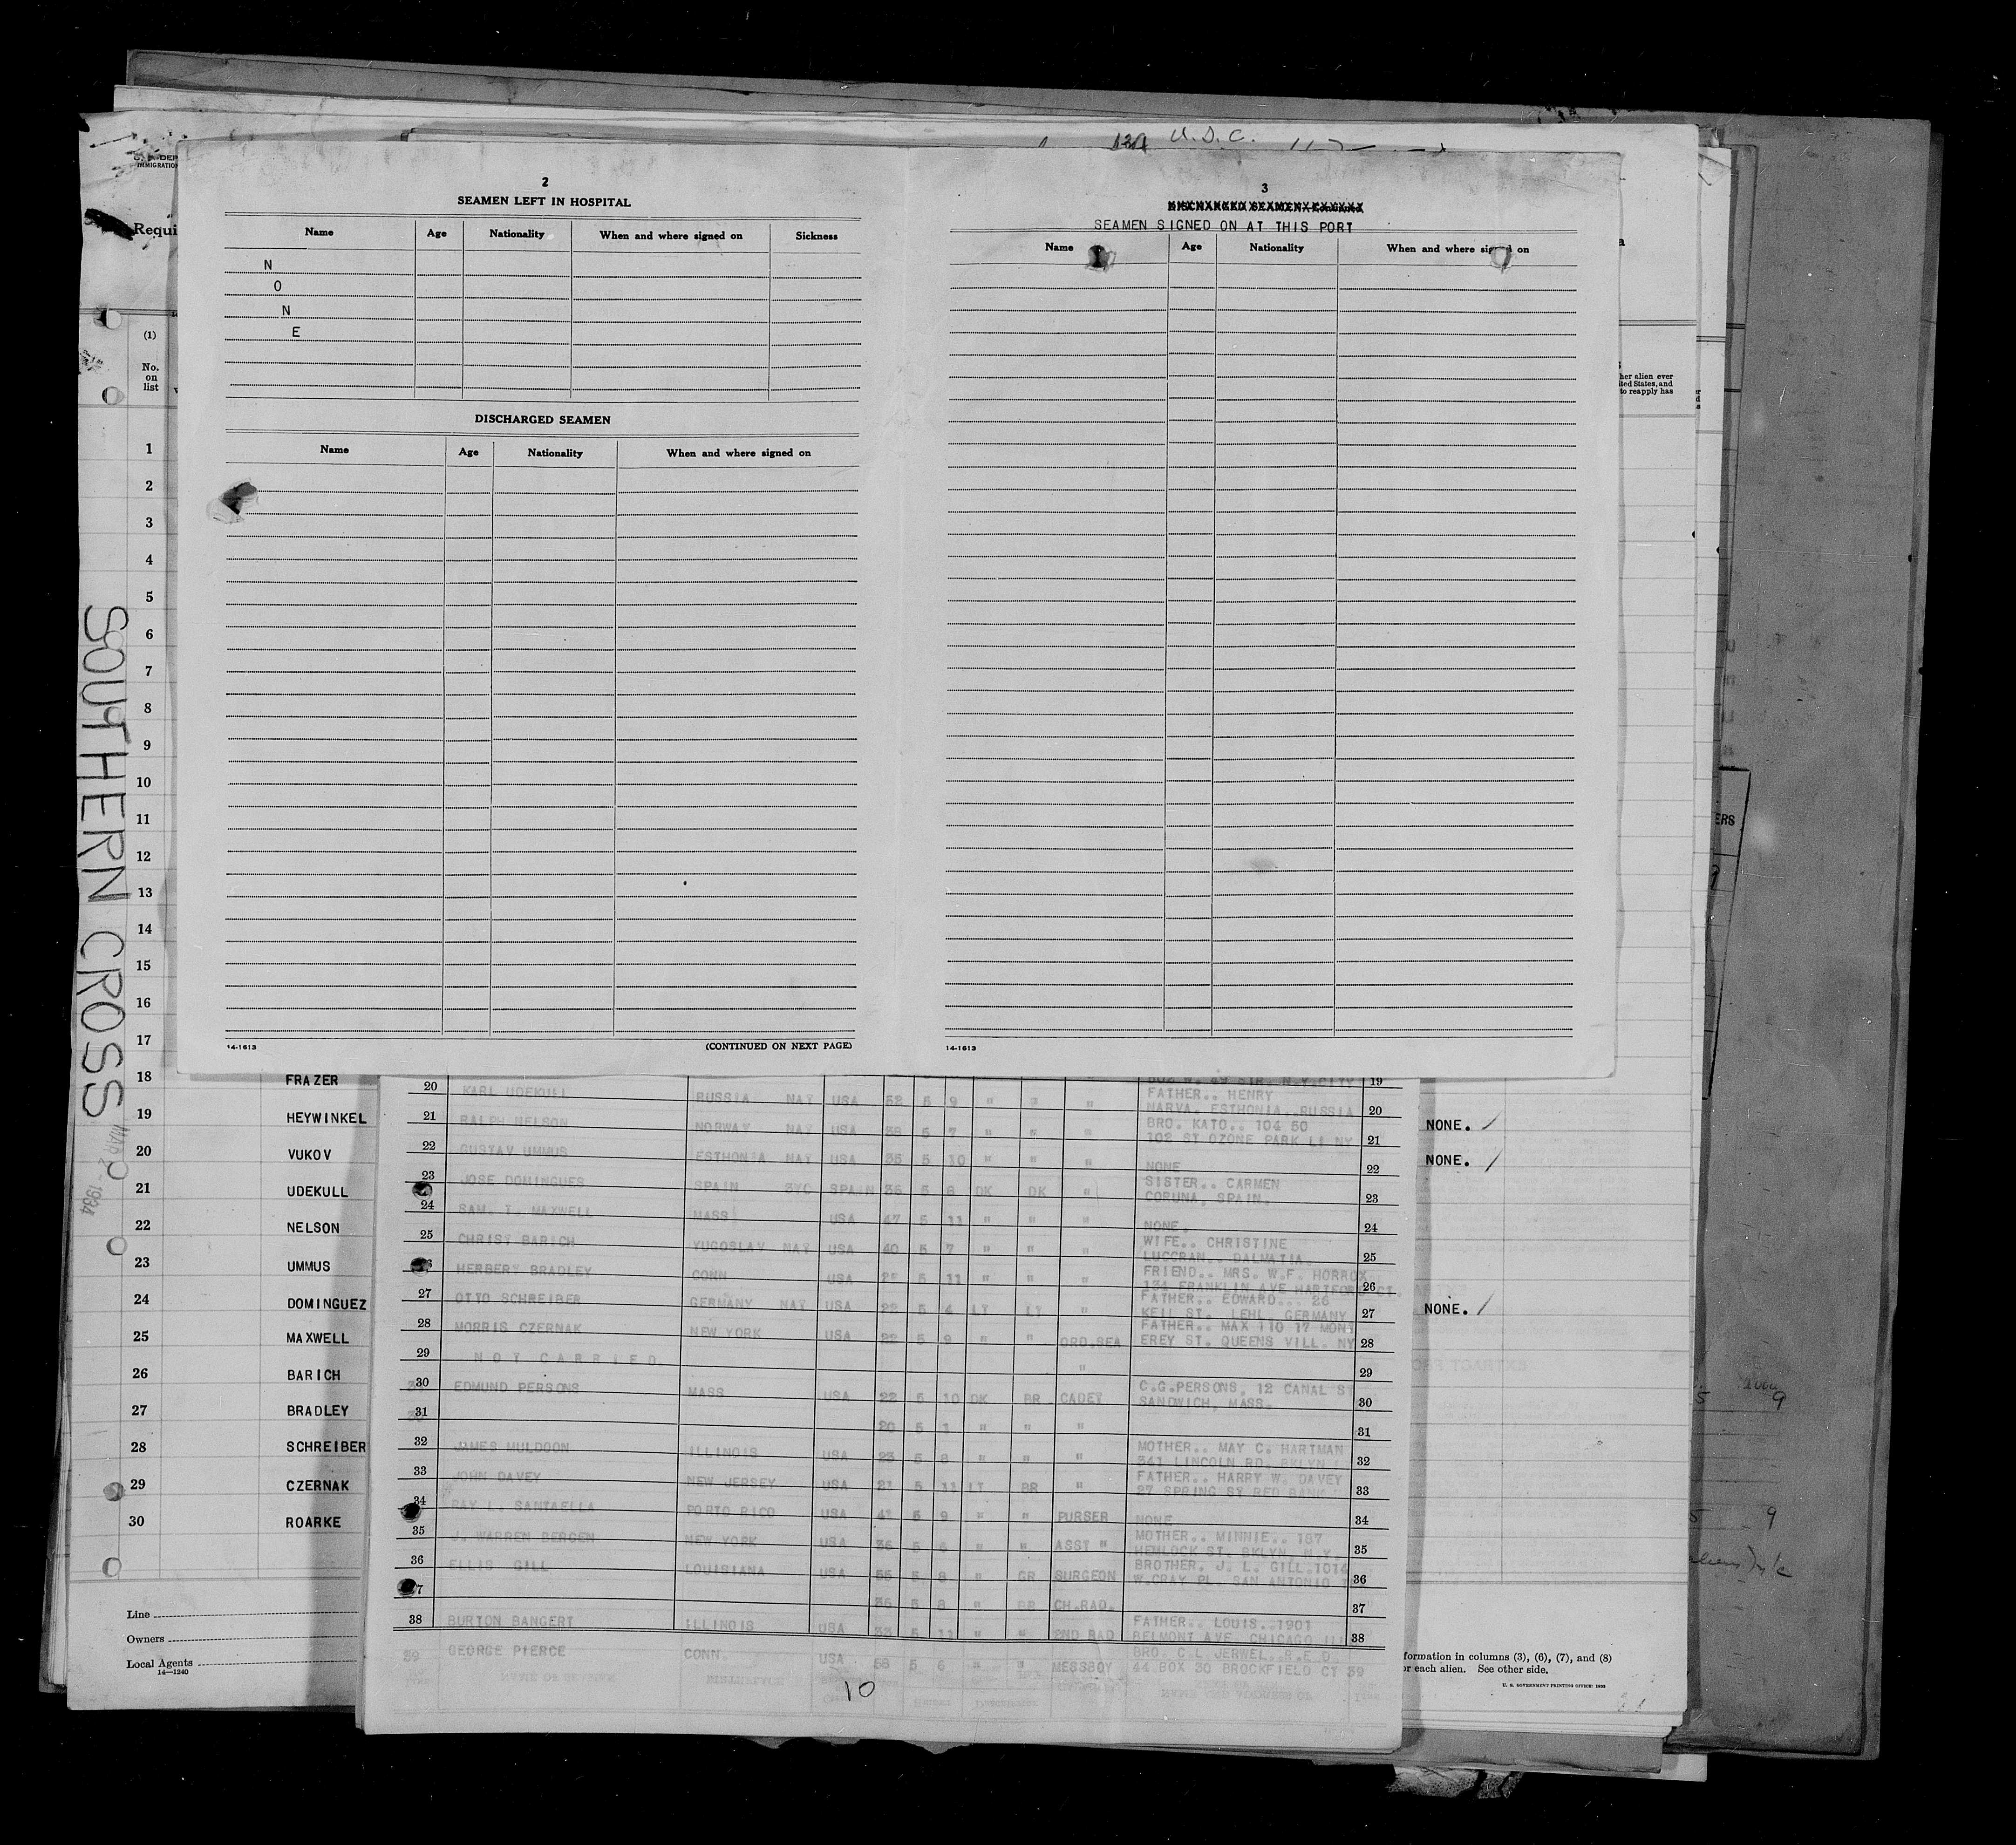 U.S.C.
2
SEAMEN LEFT IN HOSPITAL
Name Age Nationality When and where signed on Sickness
N
O
N
E
DISCHARGED SEAMEN
Name Age Nationality When and where signed on
14-1613 (CONTINUED ON NEXT PAGE)
3
SEAMEN SIGNED ON AT THIS PORT
Name Age Nationality When and where signed on
14-1613
IMMIGRATION
Requi
(1)
No.
on
list
1
2
3
4
5
6
7
8
9
10
11
12
13
14
15
16
17
18 FRAZER
19 HEYWINKEL
20 VUKOV
21 UDEKULL
22 NELSON
23 UMMUS
24 DOMINGUEZ
25 MAXWELL
26 BARICH
27 BRADLEY
28 SCHREIBER
29 CZERNAK
30 ROARKE
Line
Owners
Local Agents
14—1240
SOUTHERN CROSS
1934
her alien ever
ited States, and
to reapply has
ERS
502 W. 49 STR. N.Y.CITY 19
20 KARL UDEKULL RUSSIA NAT USA 52 5 9 " " " FATHER.. HENRY
NARVA. ESTHONIA. RUSSIA 20
21 RALPH NELSON NORWAY NAT USA 38 5 7 " " " BRO. KATO.. 104 50
102 ST OZONE PARK LI NY 21
22 GUSTAV UMMUS ESTHONIA NAT USA 35 5 10 " " " NONE 22
23 JOSE DOMINGUES SPAIN SPAIN 36 5 8 DK DK " SISTER.. CARMEN
CORUNA, SPAIN. 23
24 SAM. T. MAXWELL MASS USA 47 5 11 " " " NONE. 24
25 CHRIST BARICH YUGOSLAV NAT USA 40 5 7 " " " WIFE.. CHRISTINE
LUCCRAN.. DALMATIA. 25
HERBERT BRADLEY CONN USA 5 11 " " " FRIEND.. MRS. W.F. HORROX
134 FRANKLIN AVE HARTFORD CT. 26
27 OTTO SCHREIBER GERMANY NAT USA 22 5 4 LT LT " FATHER.. EDWARD... 26
KEIL ST. LEHL, GERMANY 27
28 MORRIS CZERNAK NEW YORK USA 22 5 9 " " ORD.SEA FATHER.. MAX 110 17 MONT
EREY ST. QUEENS VILL. NY 28
29 NOT CARRIED. " 29
30 EDMUND PERSONS MASS USA 22 5 10 DK BR CADET C.G.PERSONS, 12 CANAL ST
SANDWICH, MASS. 30
31 20 5 1 " " " 31
32 JAMES MULDOON ILLINOIS USA 23 5 8 " " " MOTHER.. MAY C. HARTMAN
341 LINCOLN RD. BKLYN 32
33 JOHN DAVEY NEW JERSEY USA 21 5 11 LT BR " FATHER.. HARRY W. DAVEY
27 SPRING ST RED BANK 33
34 RAY L. SANTAELLA PORTO RICO USA 41 5 9 " " PURSER NONE 34
35 J. WARREN BERGEN NEW YORK USA 36 5 6 " " ASST " MOTHER.. MINNIE.. 157
HEMLOCK ST. BKLYN. N.Y. 35
36 ELLIS GILL LOUISIANA USA 55 5 8 " GR SURGEON BROTHER. J. L. GILL.1014
W.CRAY PL. SAN ANTONIO 36
36 5 8 " BR CH.RAD. 37
38 BURTON BANGERT ILLINOIS USA 33 5 11 " " 2ND RAD FATHER.. LOUIS. 1901
BELMONT AVE. CHICAGO ILL 38
39 GEORGE PIERCE CONN. USA 58 5 6 " " MESSBOY BRO. C.L JERWEL. R.F.D.
44 BOX 30 BROCKFIELD CT 39
10
NONE.
NONE.
NONE.
5 9
5 9
formation in columns (3), (6), (7), and (8)
or each alien. See other side.
U. S. GOVERNMENT PRINTING OFFICE